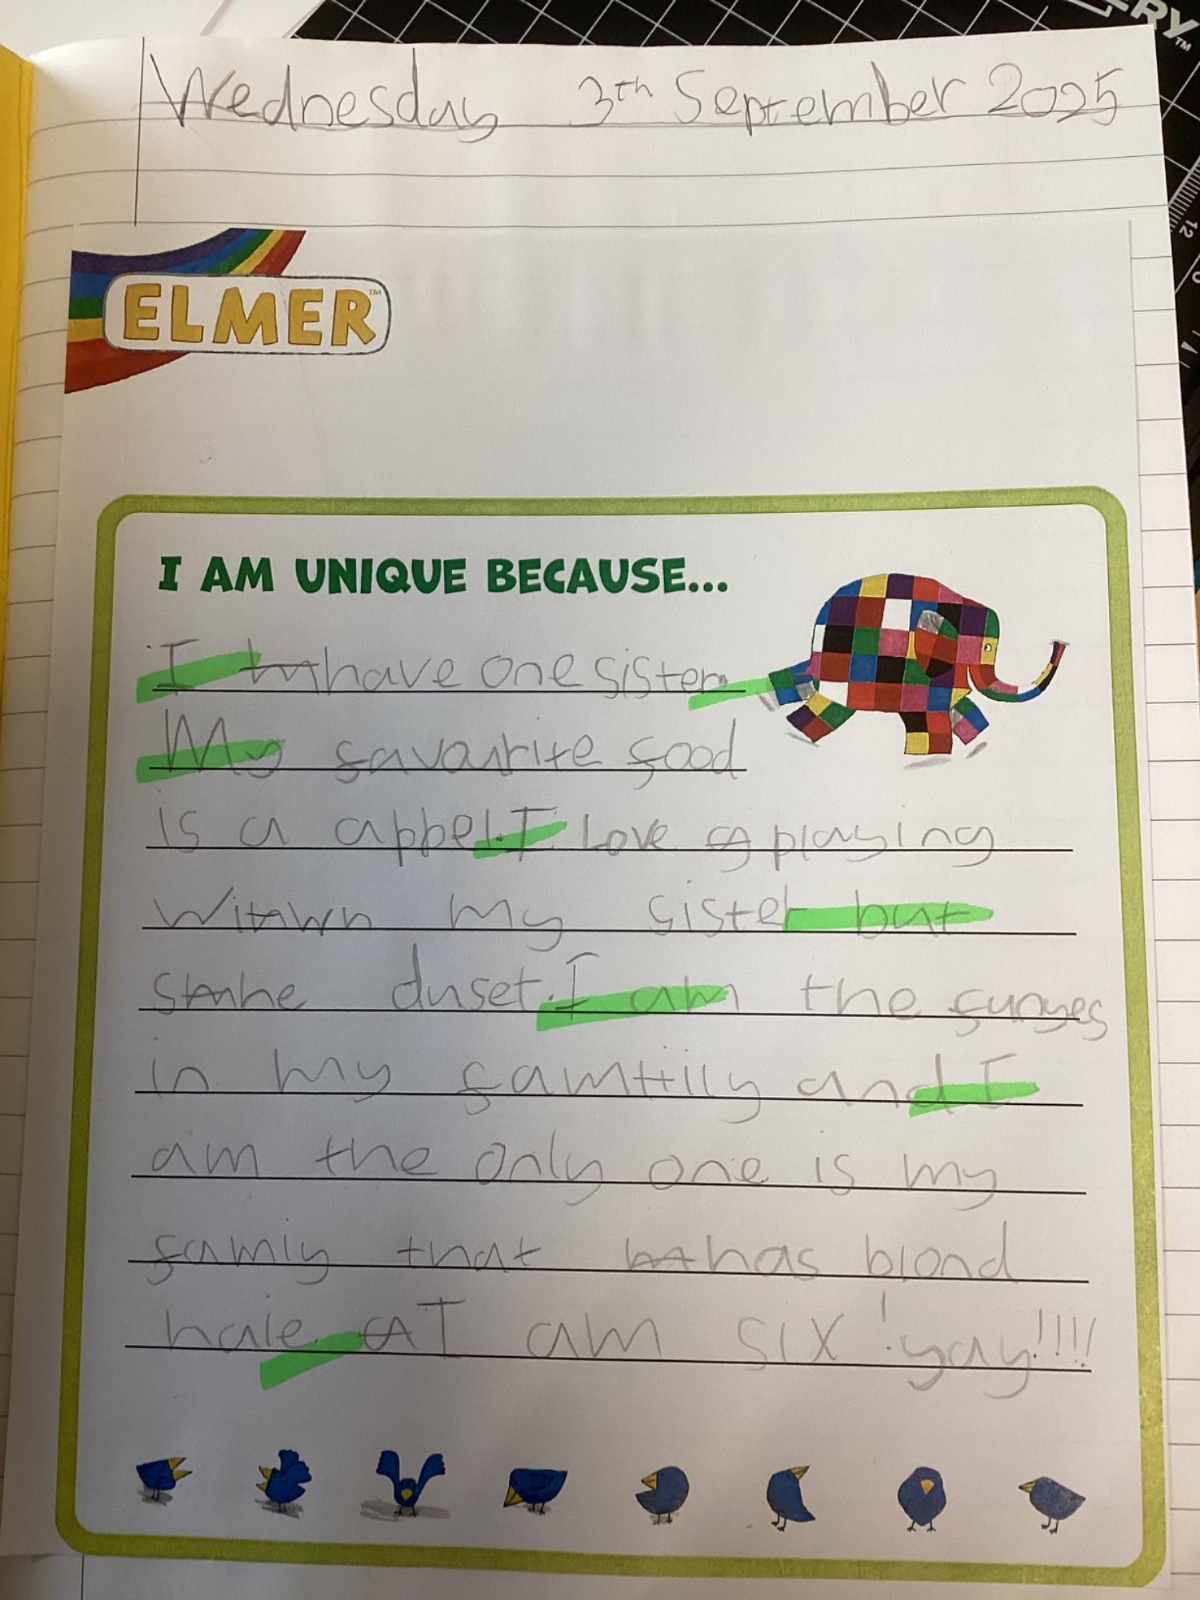 Wednesday 3th September 2025
ELMER™
I AM UNIQUE BECAUSE...
I have one sister.
My favourite food
is a appel. I Love playing
with my sister but
she duset. I am the funyes
in my familly and I
am the only one is my
famly that has blond
haie I am six! yay!!!!